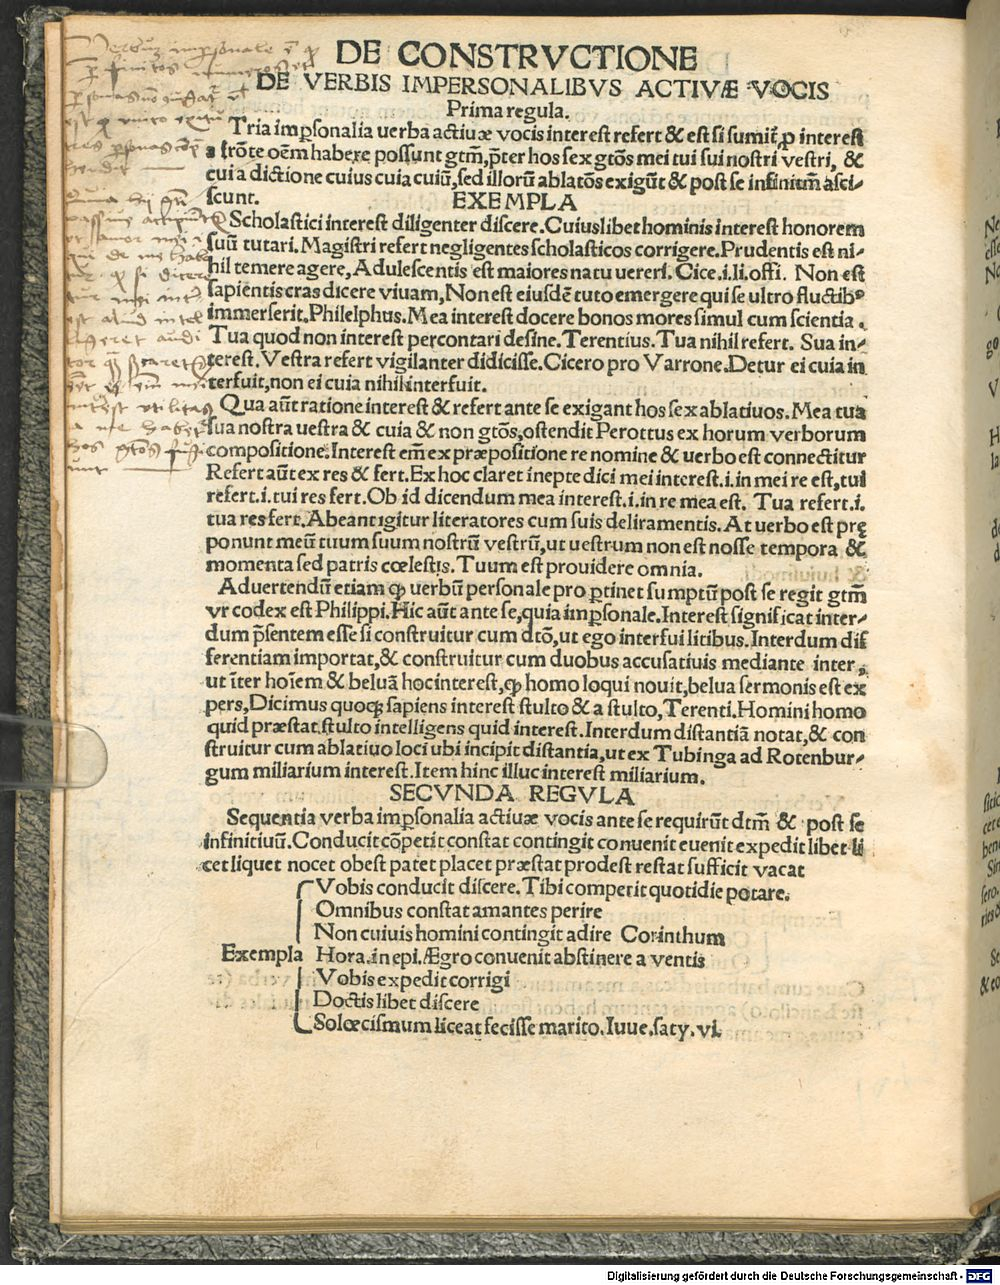 DE CONSTRVCTIONE
DE VERBIS IMPERSONALIBVS ACTIVÆ VOCIS
Prima regula.
Tria imp̱sonalia uerba actiuæ vocis interest refert & est si sumit̃ ꝓ interest
a frõte oẽm habere possunt gtm̃, p̃ter hos sex gtõs mei tui sui nostri vestri, &
cui a dictione cuius cuia cuiũ, sed illorũ ablatõs exigũt & post se infinitm̃ asci-
scunt.
EXEMPLA
Scholastici interest diligenter discere. Cuiuslibet hominis interest honorem
suũ tutari. Magistri refert negligentes scholasticos corrigere. Prudentis est ni-
hil temere agere, Adulescentis est maiores natu uereri. Cice. i. li. offi. Non est
sapientis cras dicere viuam, Non est eiusdẽ tuto emergere qui se ultro fluctibꝰ
immerserit. Philelphus. Mea interest docere bonos mores simul cum scientia.
Tua quod non interest percontari desine. Terentius. Tua nihil refert. Sua in-
terest. Vestra refert vigilanter didicisse. Cicero pro Varrone. Detur ei cuia in
terfuit, non ei cuia nihil interfuit.
Qua aũt ratione interest & refert ante se exigant hos sex ablatiuos. Mea tua
sua nostra uestra & cuia & non gtõs, ostendit Perottus ex horum verborum
compositione. Interest em̃ ex præpositione re nomine & uerbo est connectitur
Refert aũt ex res & fert. Ex hoc claret inepte dici mei interest. i. in mei re est, tui
refert. i. tui res fert. Ob id dicendum mea interest. i. in re mea est. Tua refert. i.
tua res fert. Abeant igitur literatores cum suis deliramentis. At uerbo est prę
ponunt meũ tuum suum nostrũ vestrũ, ut uestrum non est nosse tempora &
momenta sed patris cœlestis. Tuum est prouidere omnia.
Aduertendũ etiam ꝙ uerbũ personale pro ꝑtinet sumptũ post se regit gtm̃
vr codex est Philippi. Hic aũt ante se, quia imp̱sonale. Interest significat inter-
dum p̃sentem esse si construitur cum dtõ, ut ego interfui litibus. Interdum dif
ferentiam importat, & construitur cum duobus accusatiuis mediante inter,
ut ĩter hoĩem & beluã hoc interest, ꝙ homo loqui nouit, belua sermonis est ex
pers, Dicimus quoqꝫ sapiens interest stulto & a stulto, Terenti. Homini homo
quid præstat. stulto intelligens quid interest. Interdum distantiã notat, & con
struitur cum ablatiuo loci ubi incipit distantia, ut ex Tubinga ad Rotenbur-
gum miliarium interest. Item hinc illuc interest miliarium.
SECVNDA REGVLA
Sequentia verba imp̱sonalia actiuæ vocis ante se requirũt dtm̃ & post se
infinitiuũ. Conducit cõpetit constat contingit conuenit euenit expedit libet li
cet liquet nocet obest patet placet præstat prodest restat sufficit vacat
Vobis conducit discere. Tibi competit quotidie potare.
Omnibus constat amantes perire
Non cuiuis homini contingit adire Corinthum
Exempla Hora. in epi. Ægro conuenit abstinere a ventis
Vobis expedit corrigi
Doctis libet discere
Solœcismum liceat fecisse marito. Iuue. saty. vi.
Digitalisierung gefördert durch die Deutsche Forschungsgemeinschaft - DFG